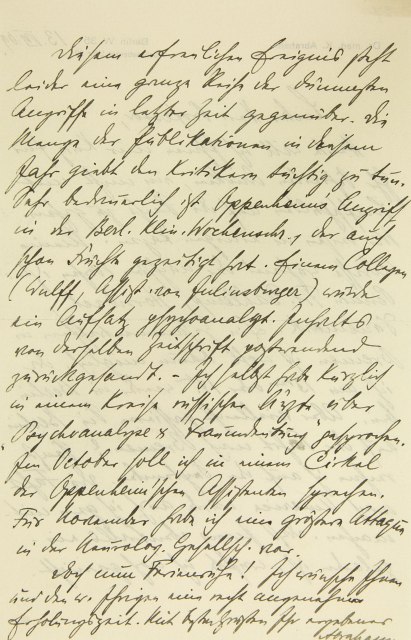 Diesem erfreulichen Ereignis steht
leider eine ganze Reihe der dümmsten
Angriffe in letzter Zeit gegenüber. Die
Menge der Publikationen in diesem
Jahr giebt den Kritikern tüchtig zu tun.
Sehr bedauerlich ist Oppenheims Angriff
in der Berl. klin. Wochenschr., der auch
schon Früchte gezeitigt hat. Einem Collegen
(Wulff, Assist. von Juliusburger) wurde
ein Aufsatz psychoanalyt. Inhalts
von derselben Zeitschrift postwendend
zurückgesandt. – Ich selbst habe kürzlich
in einem Kreise russischer Ärzte über
"Psychoanalyse & Traumdeutung" gesprochen.
Im October soll ich in einem Cirkel
der Oppenheim'schen Assistenten sprechen.
Für November habe ich eine größere Attaque
in der Neurolog. Gesellsch. vor.
Doch nun Ferienruhe! Ich wünsche Ihnen
und den w. Ihrigen eine recht angenehme
Erholungszeit. Mit besten Grüßen Ihr ergebener
Abraham